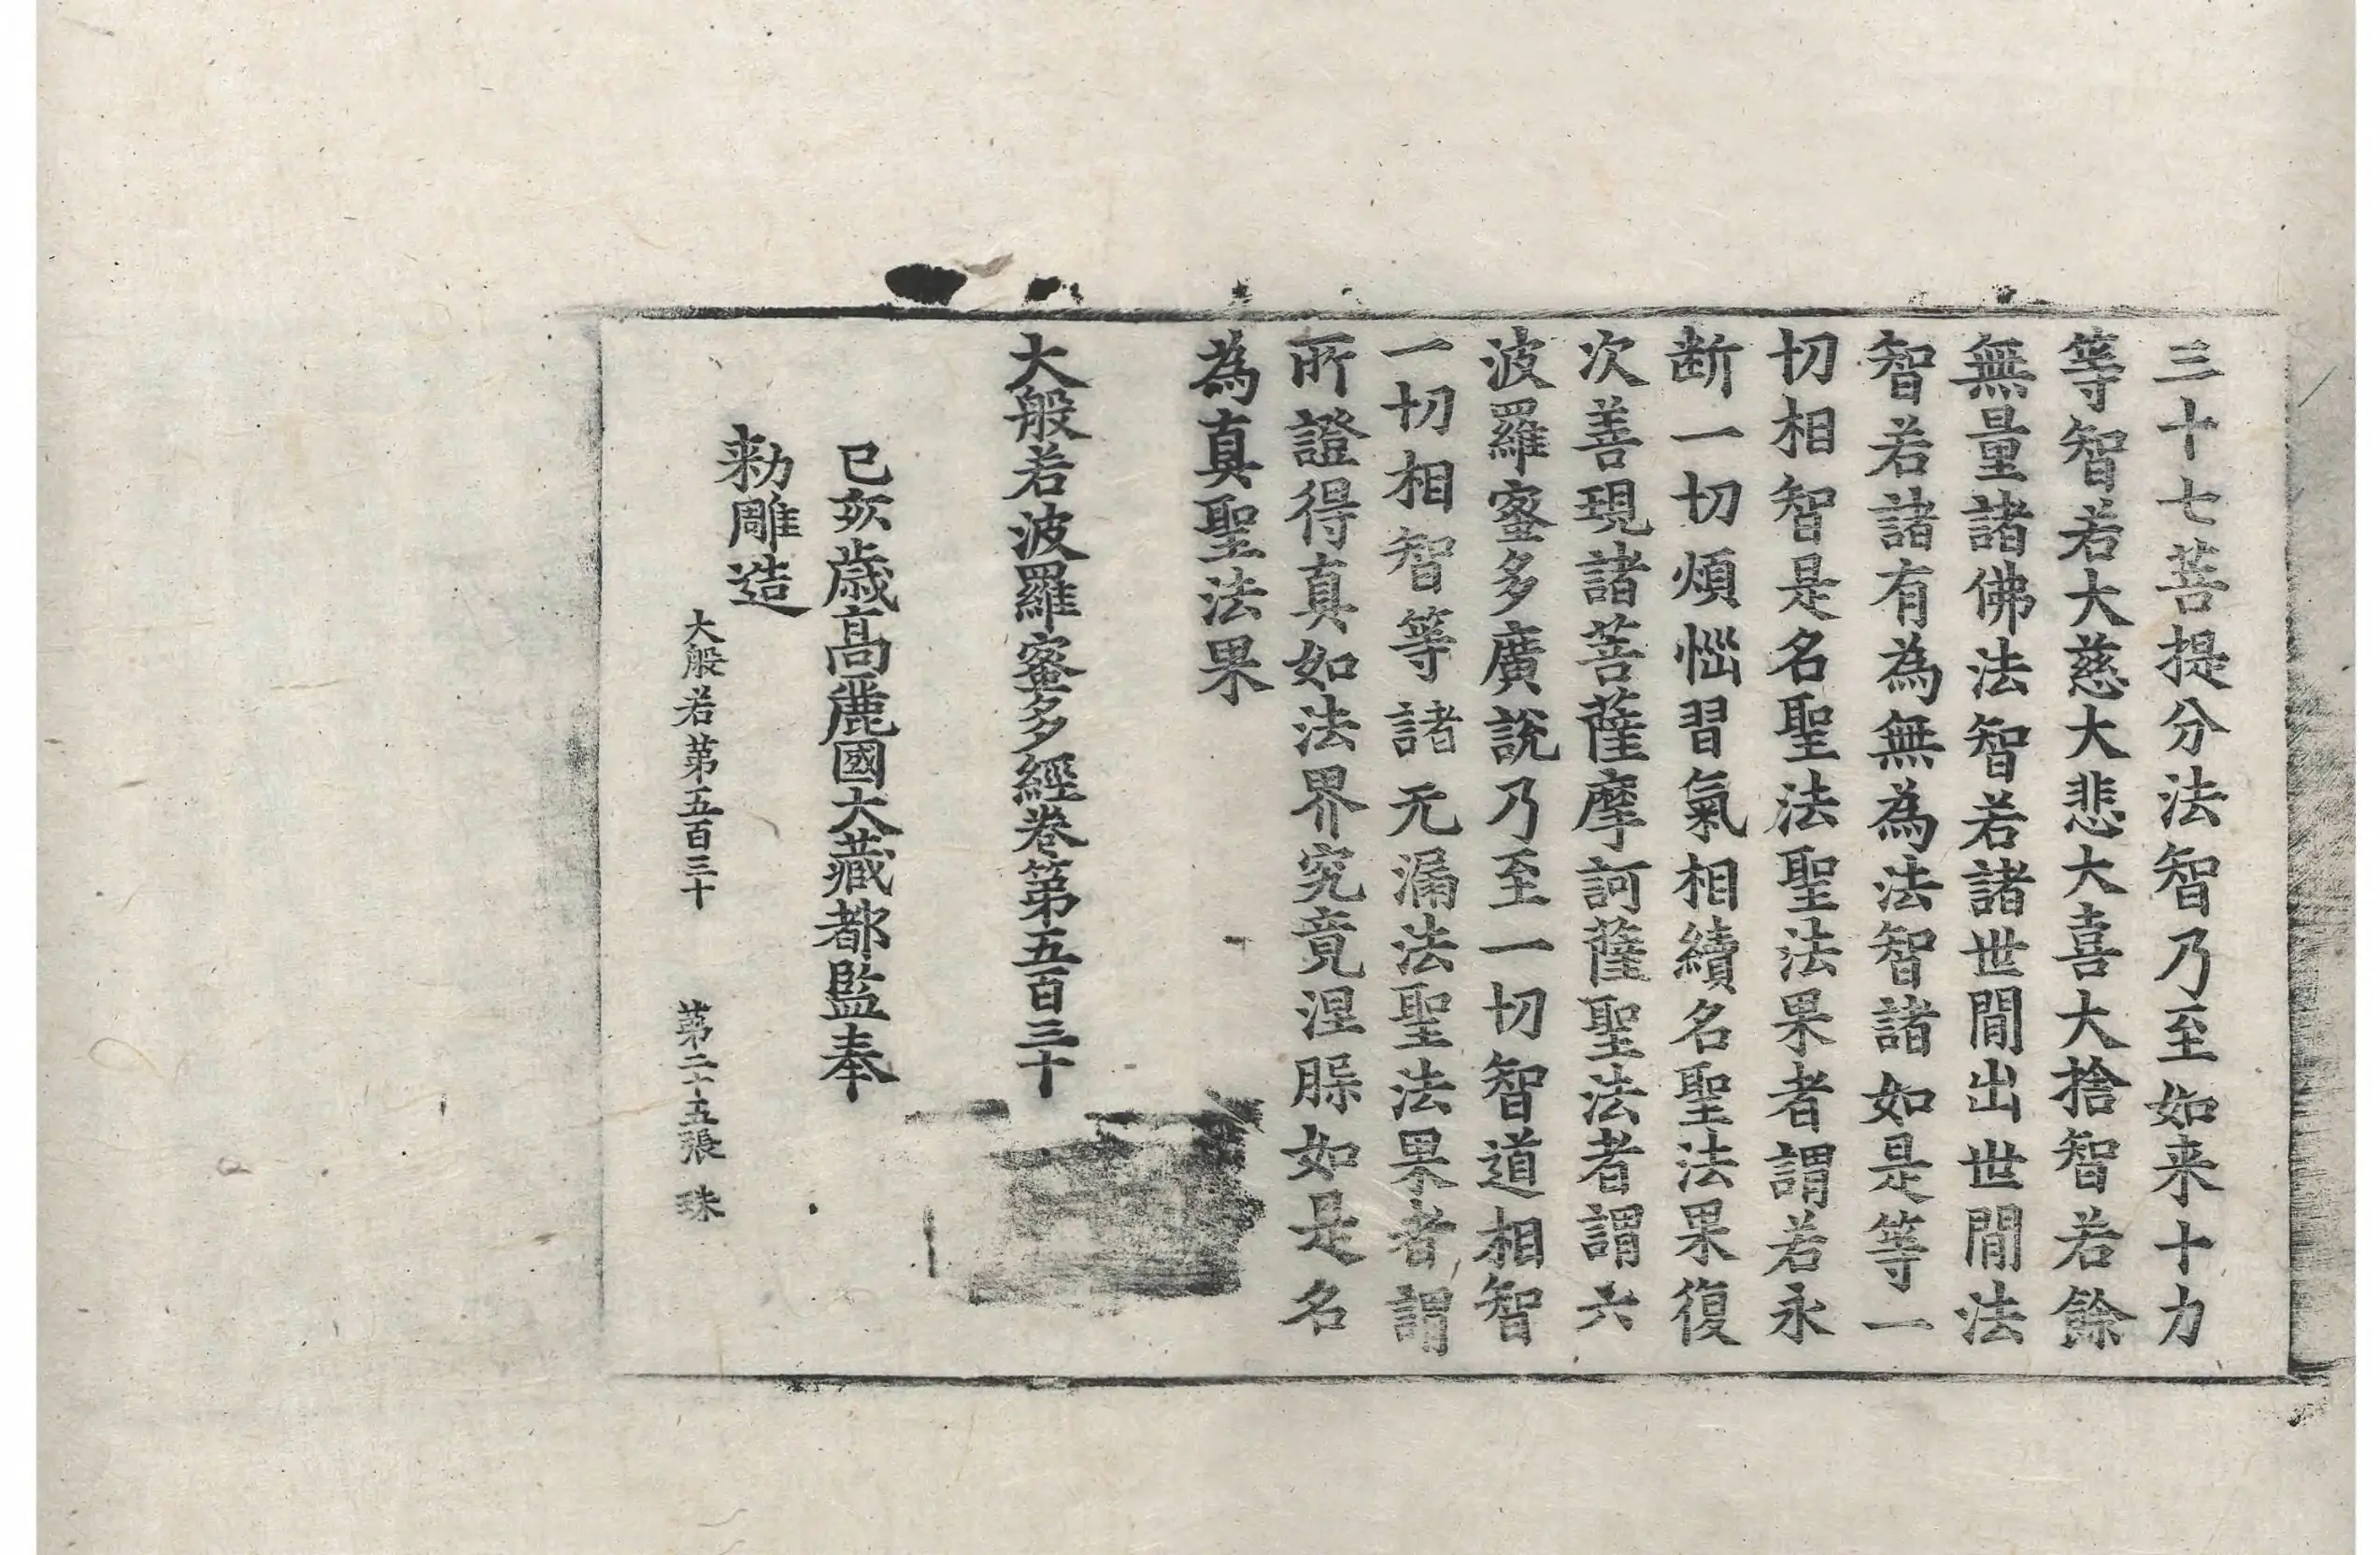 三十七菩提分法智乃至如来十力
等智若大慈大悲大喜大捨智若餘
無量諸佛法智若諸世間出世間法
智若諸有為無為法智諸如是等一
切相智是名聖法聖法果者謂若永
断一切煩惱習氣相續名聖法果復
次善現諸菩薩摩訶薩聖法者謂六
波羅蜜多廣說乃至一切智道相智
一切相智等諸无漏法聖法果者謂
所證得真如法界究竟涅槃如是名
為真聖法果
大般若波羅蜜多經卷第五百三十
己亥歲高麗國大藏都監奉
勑雕造
大般若第五百三十 第二十五張 珠